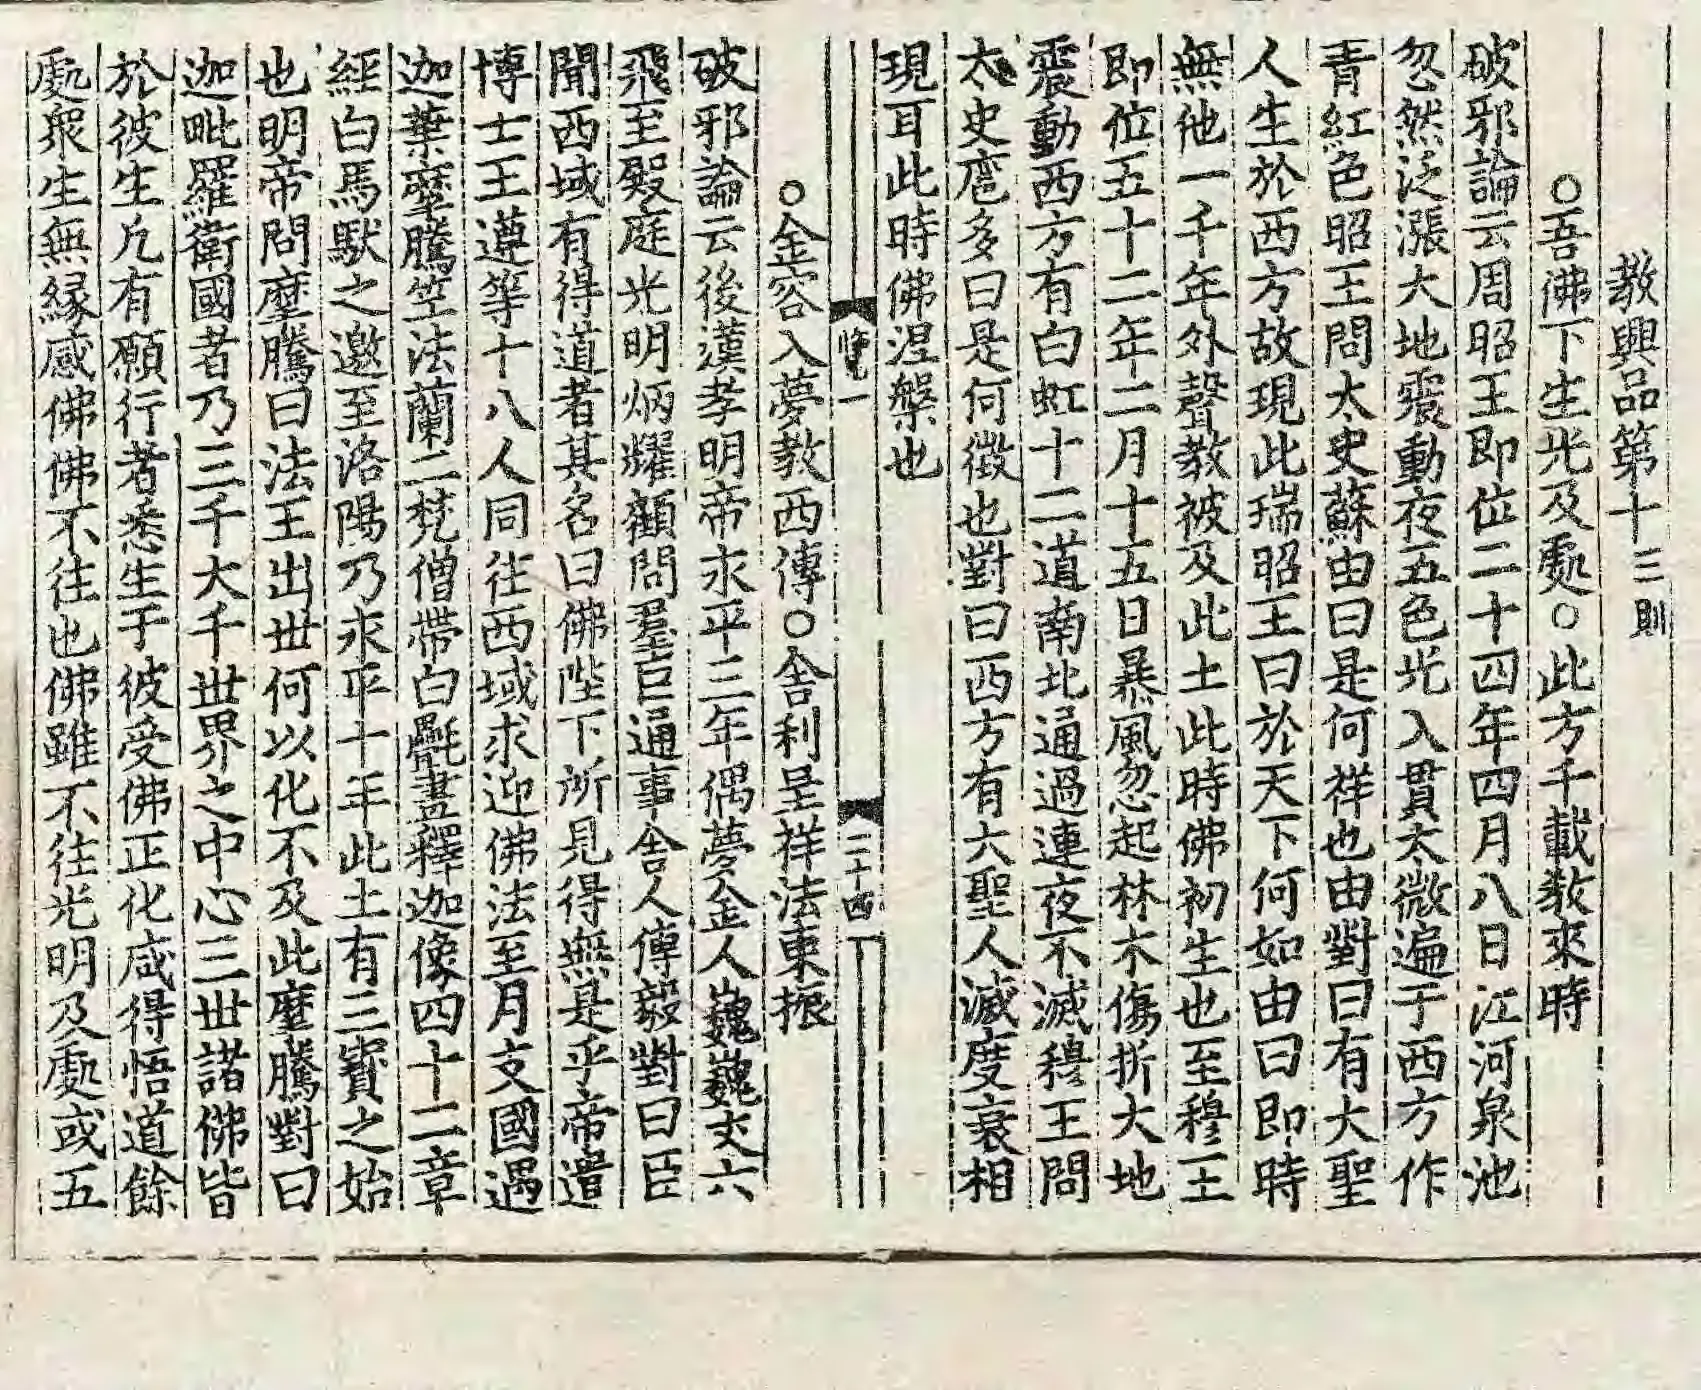 教興品第十三則
○吾佛下生光及處○此方千載敎來時
破邪論云周昭王即位二十四年四月八日江河泉池
忽然泛漲大地震動夜五色光入貫太微遍于西方作
青紅色昭王問太史蘇由曰是何祥也由對曰有大聖
人生於西方故現此瑞昭王曰於天下何如由曰即時
無他一千年外聲教被及此土此時佛初生也至穆王
即位五十二年二月十五日暴風忽起林木傷折大地
震動西方有白虹十二道南北通過連夜不滅穆王問
太史扈多曰是何徵也對曰西方有六聖人滅度衰相
現耳此時佛涅槃也
一
二十四
○金容入夢教西傳○舍利呈祥法東振
破邪論云後漢孝明帝永平三年偶夢金人巍巍丈六
飛至殿庭光明炳耀顧問羣臣通事舍人傅毅對曰臣
聞西域有得道者其名曰佛陛下所見得無是乎帝遣
博士王遵等十八人同往西域求迎佛法至月支國遇
迦葉摩騰竺法蘭二梵僧帶白氎畫釋迦像四十二章
經白馬馱之邀至洛陽乃永平十年此土有三寶之始
也明帝問摩騰曰法王出世何以化不及此摩騰對曰
迦毗羅衛國者乃三千大千世界之中心三世諸佛皆
於彼生凡有願行者悉生于彼受佛正化咸得悟道餘
處衆生無緣感佛佛不往也佛雖不往光明及處或五